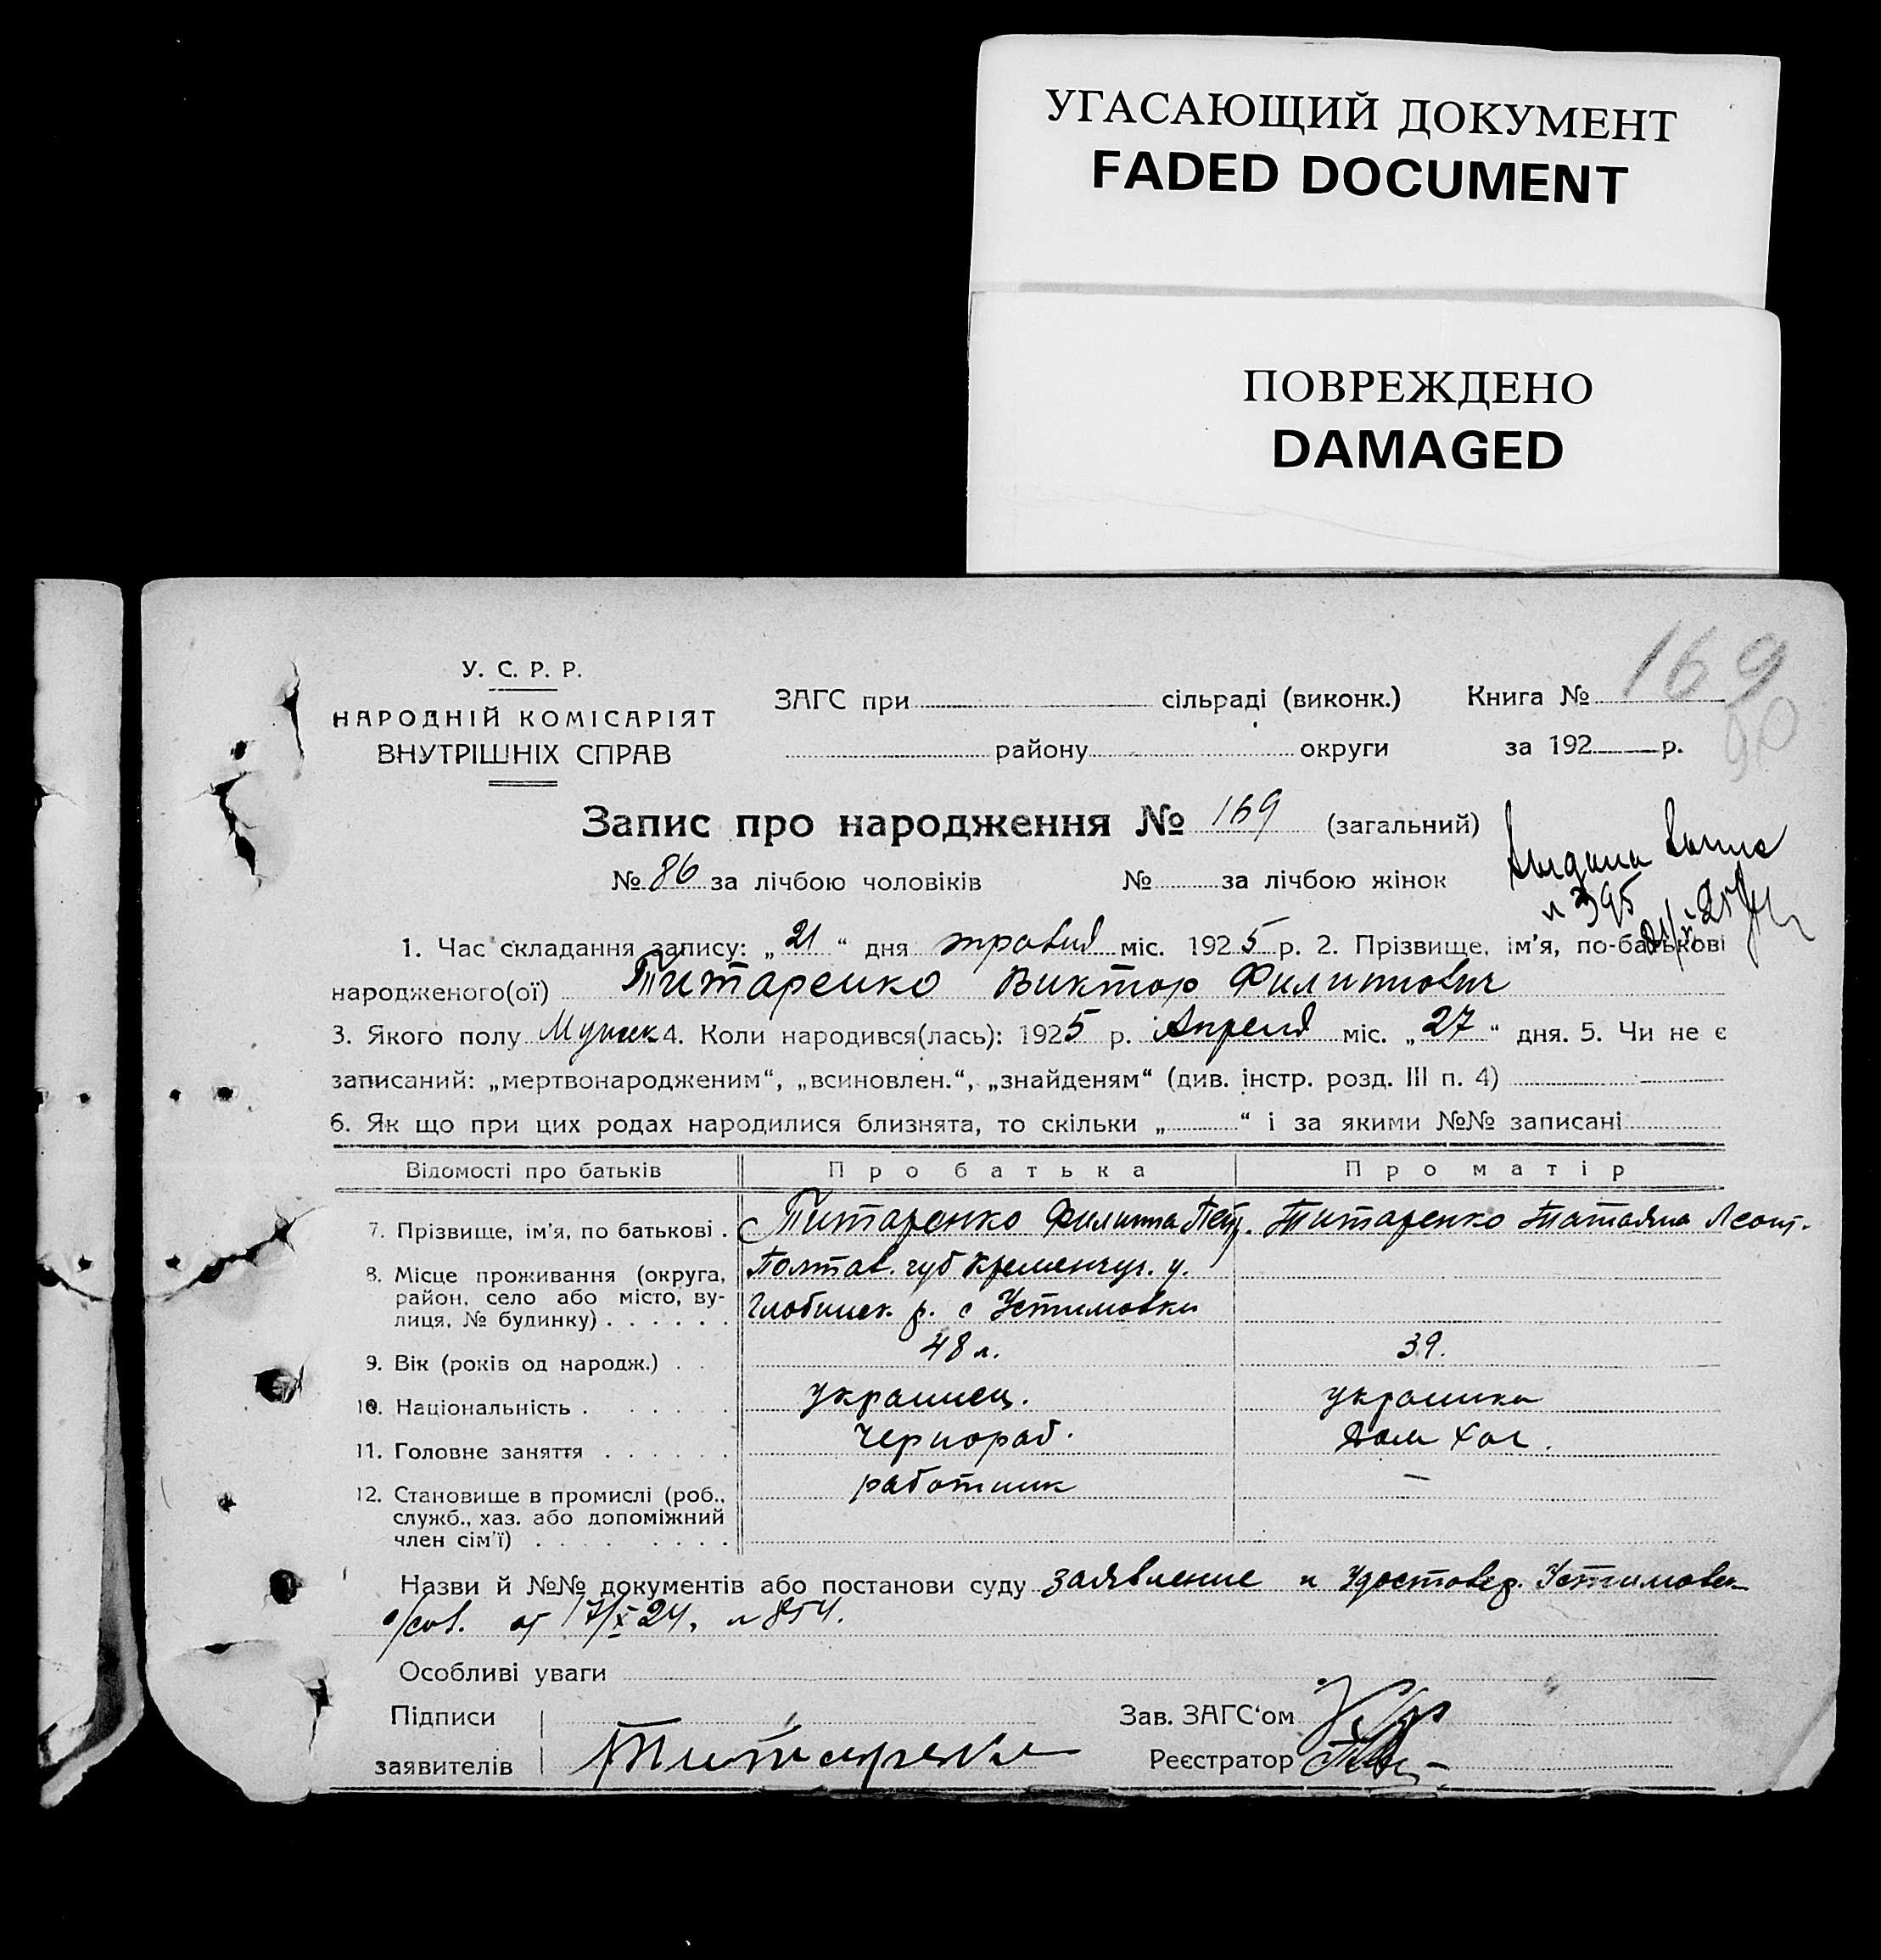 УГАСАЮЩИЙ ДОКУМЕНТ
FADED DOCUMENT
ПОВРЕЖДЕНО
DAMAGED
169
90
У. С. Р. Р.
НАРОДНІЙ КОМІСАРІЯТ
ВНУТРІШНІХ СПРАВ
ЗАГС при сільраді (виконк.) Книга №
району округи за 192 р.
Запис про народження № 169 (загальний)
№ 86 за лічбою чоловіків № за лічбою жінок
№ 395
1. Час складання запису: „21“ дня травня міс. 1925 р. 2. Прізвище, ім'я, по-батькові
народженого(ої) Титаренко Виктор Филиппович
3. Якого полу Мужск 4. Коли народився(лась): 1925 р. Апреля міс. „27“ дня. 5. Чи не є
записаний: „мертвонародженим“, „всиновлен.“, „знайденям“ (див. інстр. розд. III п. 4)
6. Як що при цих родах народилися близнята, то скільки „ “ і за якими №№ записані
Відомості про батьків Про батька Про матір
7. Прізвище, ім'я, по батькові . Титаренко Филиппа Петр. Титаренко Татьяна Леонт.
8. Місце проживання (округа, район, село або місто, вулиця, № будинку) . . . . . . Полтав. губ Кременчуг. у.
Глобинск. р. с Устимовки
9. Вік (років од народж.) . . 48 л. 39.
10. Національність . . . . . украинец. украинка
11. Головне заняття . . . . . . Чернораб. Дом Хоз.
12. Становище в промислі (роб., служб., хаз. або допоміжний член сім'ї) . . . . . . . . работник —
Назви й №№ документів або постанови суду заявление и Удостовер. Устимовск
с/сов. от 17/X 24. № 854.
Особливі уваги
Підписи Зав. ЗАГС'ом
заявителів Титаренко Реєстратор